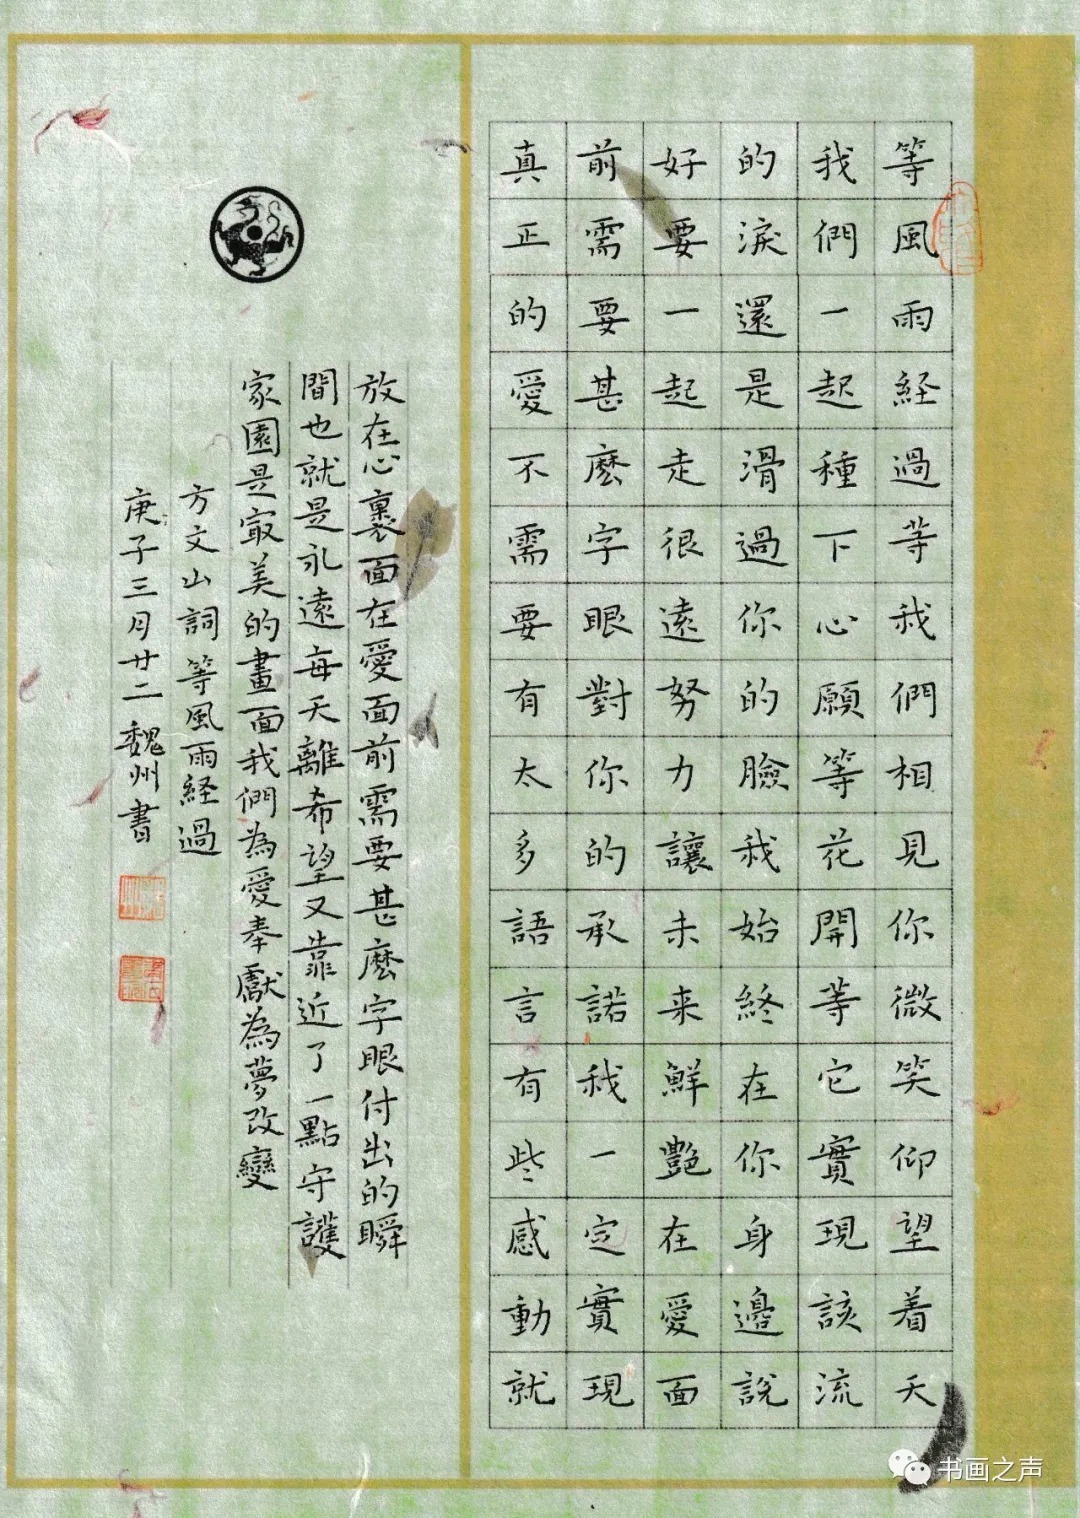 等風雨経過等我們相見你微笑仰望着天
我們一起種下心願等花開等它實現該流
的淚還是滑過你的臉我始終在你身邊說
好要一起走很遠努力讓未来鮮艷在愛面
前需要甚麽字眼對你的承諾我一定實現
真正的愛不需要有太多語言有些感動就
放在心裏面在愛面前需要甚麽字眼付出的瞬
間也就是永遠每天離希望又靠近了一點守護
家園是寂美的畫面我們為愛奉獻為夢改變
方文山詞等風雨経過
庚子三月廿二魏州書
书画之声